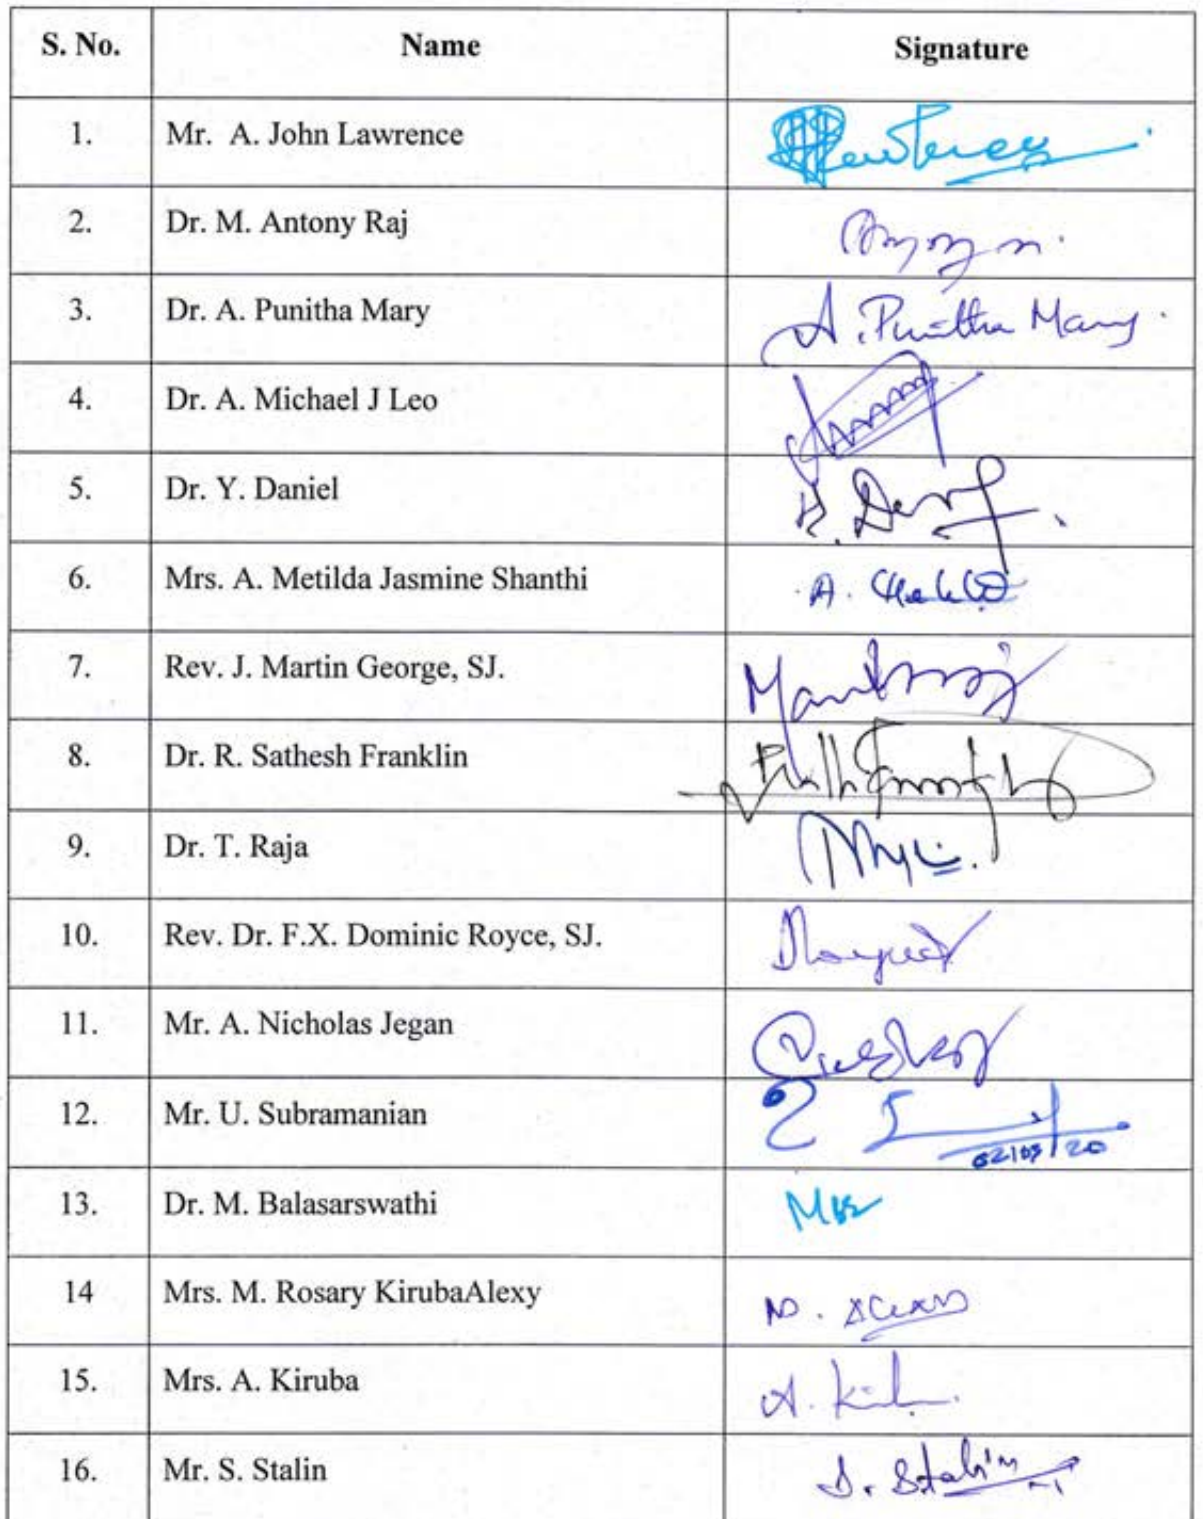 S. No. Name Signature
1. Mr. A. John Lawrence
2. Dr. M. Antony Raj
3. Dr. A. Punitha Mary A. Punitha Mary
4. Dr. A. Michael J Leo
5. Dr. Y. Daniel
6. Mrs. A. Metilda Jasmine Shanthi
7. Rev. J. Martin George, SJ.
8. Dr. R. Sathesh Franklin
9. Dr. T. Raja
10. Rev. Dr. F.X. Dominic Royce, SJ.
11. Mr. A. Nicholas Jegan
12. Mr. U. Subramanian
13. Dr. M. Balasarswathi
14 Mrs. M. Rosary KirubaAlexy
15. Mrs. A. Kiruba
16. Mr. S. Stalin S. Stalin